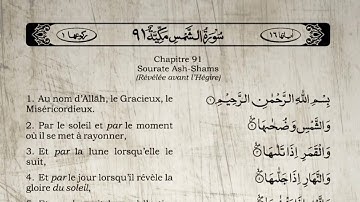 ركوعها ١ سُوْرَةُ الشَّمْسِ مَكِّيَّةٌ ٩١ اٰیاتها ١٦
Chapitre 91
Sourate Ash-Shams
(Révélée avant l'Hégire)
1. Au nom d'Allāh, le Gracieux, le
Miséricordieux.
بِسْمِ اللّٰهِ الرَّحْمٰنِ الرَّحِيْمِ ①
2. Par le soleil et par le moment
où il se met à rayonner,
وَالشَّمْسِ وَضُحٰىهَا ②
3. Et par la lune lorsqu'elle le
suit,
وَالْقَمَرِ اِذَا تَلٰىهَا ③
4. Et par le jour lorsqu'il révèle la
gloire du soleil,
وَالنَّهَارِ اِذَا جَلّٰىهَا ④